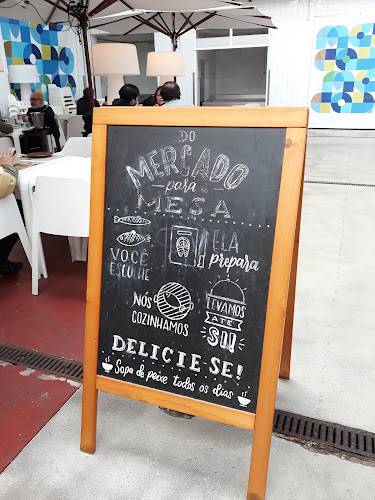 DO
MERCADO
para a
MESA
VOCÊ
ESCOLHE
ELA
prepara
NÓS
COZINHAMOS
LEVAMOS
ATÉ
SI!
DELICIE-SE!
Sopa de peixe todos os dias